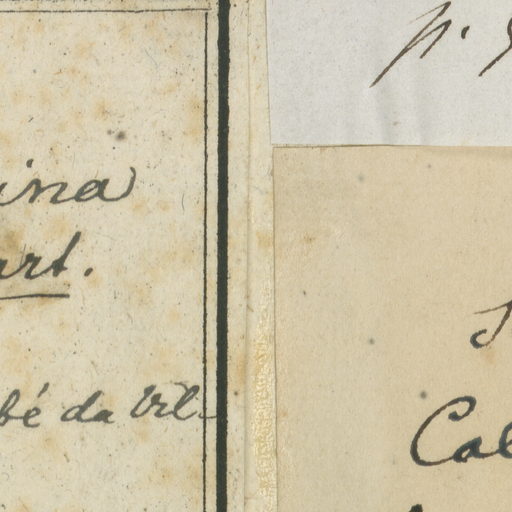 p.
ina
art.
bé da Vil-
Cal